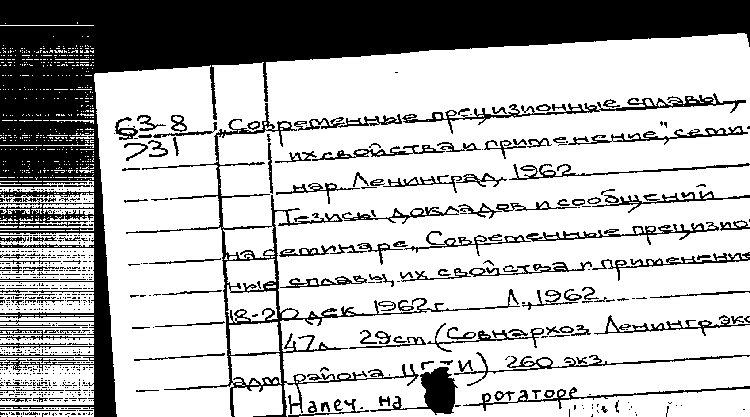 63-8 „Современные прецизионные сплавы,
731
их свойства и применение", семи-
нар. Ленинград. 1962.
Тезисы докладов и сообщений
на семинаре „Современные прецизион
ные сплавы, их свойства и применение
18-20 дек. 1962 г. Л., 1962.
47 л. 29 см. (Совнархоз Ленингр. эко
адм. района ЦБТИ) 260 экз.
Напеч. на ротаторе